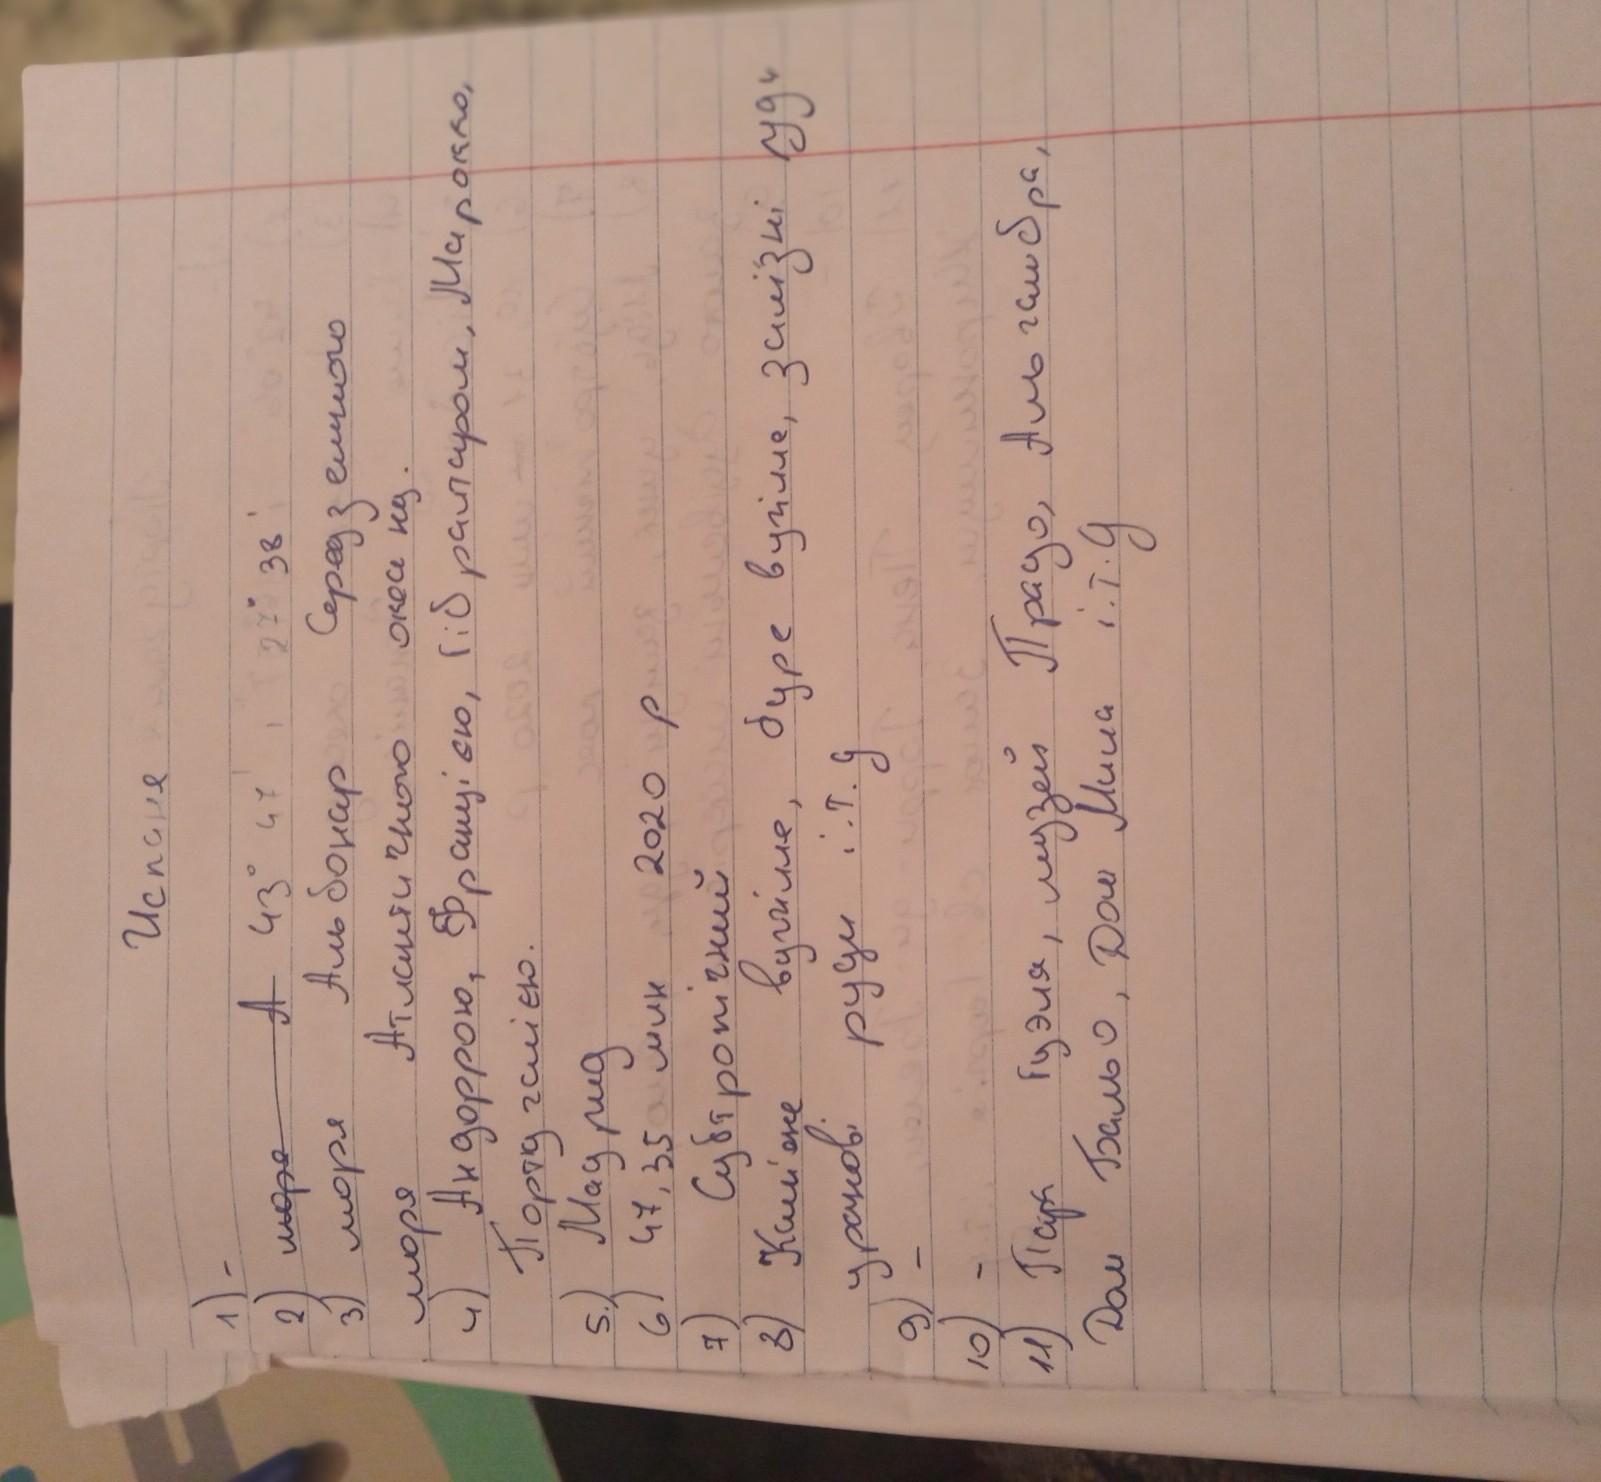 Испания
1) -
2) моря А 43° 47' і 27° 38'
3) моря Альбонар Середземного
моря Атлантичного океану.
4) Андоррою, Францією, Гібралтаром, Марокко,
Португалією.
5.) Мадрид
6) 47,35 млн 2020 р
7) Субтропічний
8) Камʼяне вугілля, буре вугілле, залізні руди
уранові руди і.т.д
9) -
10) -
11) Парк Гуэля, музей Прадо, Альгамбра,
Дом Бальо, Дом Мила і.т.д